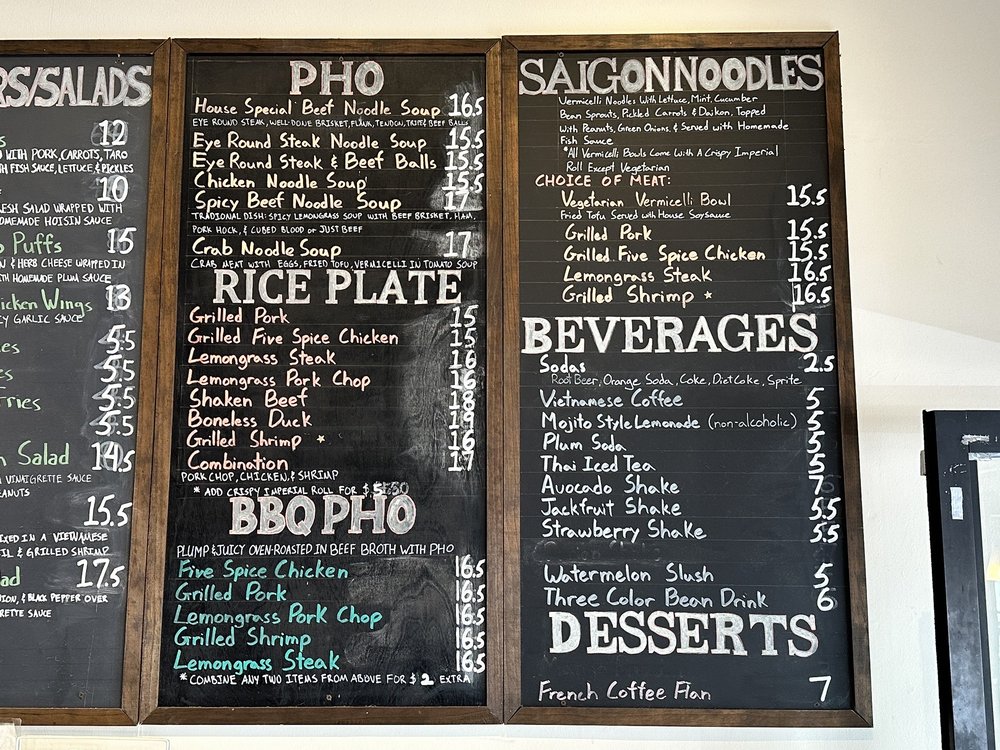 RS/SALADS
12
D WITH PORK, CARROTS, TARO
TH FISH SAUCE, LETTUCE, & PICKLES
10
RESH SALAD WRAPPED WITH
HOMEMADE HOISIN SAUCE
Puffs 15
N & HERB CHEESE WRAPPED IN
TH HOMEMADE PLUM SAUCE
icken Wings 13
CY GARLIC SAUCE
es 5.5
es 5.5
Fries 5.5
5.5
n Salad 14.5
VINAIGRETTE SAUCE
EANUTS
15.5
IXED IN A VIETNAMESE
IL & GRILLED SHRIMP
lad 17.5
ION, & BLACK PEPPER OVER
RETTE SAUCE
PHO
House Special Beef Noodle Soup 16.5
EYE ROUND STEAK, WELL-DONE BRISKET, FLANK, TENDON, TRIPE & BEEF BALLS
Eye Round Steak Noodle Soup 15.5
Eye Round Steak & Beef Balls 15.5
Chicken Noodle Soup 15.5
Spicy Beef Noodle Soup 17
TRADIONAL DISH: SPICY LEMONGRASS SOUP WITH BEEF BRISKET, HAM,
PORK HOCK, & CUBED BLOOD or JUST BEEF
Crab Noodle Soup 17
CRAB MEAT WITH EGGS, FRIED TOFU, VERMICELLI IN TOMATO SOUP
RICE PLATE
Grilled Pork 15
Grilled Five Spice Chicken 15
Lemongrass Steak 16
Lemongrass Pork Chop 16
Shaken Beef 18
Boneless Duck 19
Grilled Shrimp * 16
Combination 17
PORK CHOP, CHICKEN, & SHRIMP
* ADD CRISPY IMPERIAL ROLL FOR $
BBQ PHO
PLUMP & JUICY OVEN-ROASTED IN BEEF BROTH WITH PHO
Five Spice Chicken 16.5
Grilled Pork 16.5
Lemongrass Pork Chop 16.5
Grilled Shrimp 16.5
Lemongrass Steak 16.5
* COMBINE ANY TWO ITEMS FROM ABOVE FOR $ 2 EXTRA
SAIGON NOODLES
Vermicelli Noodles With Lettuce, Mint, Cucumber
Bean Sprouts, Pickled Carrots & Daikon, Topped
With Peanuts, Green Onions, & Served with Homemade
Fish Sauce
*All Vermicelli Bowls Come With A Crispy Imperial
Roll Except Vegetarian
CHOICE OF MEAT:
Vegetarian Vermicelli Bowl 15.5
Fried Tofu Served with House Soysauce
Grilled Pork 15.5
Grilled Five Spice Chicken 15.5
Lemongrass Steak 16.5
Grilled Shrimp * 16.5
BEVERAGES
Sodas 2.5
Root Beer, Orange Soda, Coke, Diet Coke, Sprite
Vietnamese Coffee 5
Mojito Style Lemonade (non-alcoholic) 5
Plum Soda 5
Thai Iced Tea 5
Avocado Shake 7
Jackfruit Shake 5.5
Strawberry Shake 5.5
Watermelon Slush 5
Three Color Bean Drink 6
DESSERTS
French Coffee Flan 7